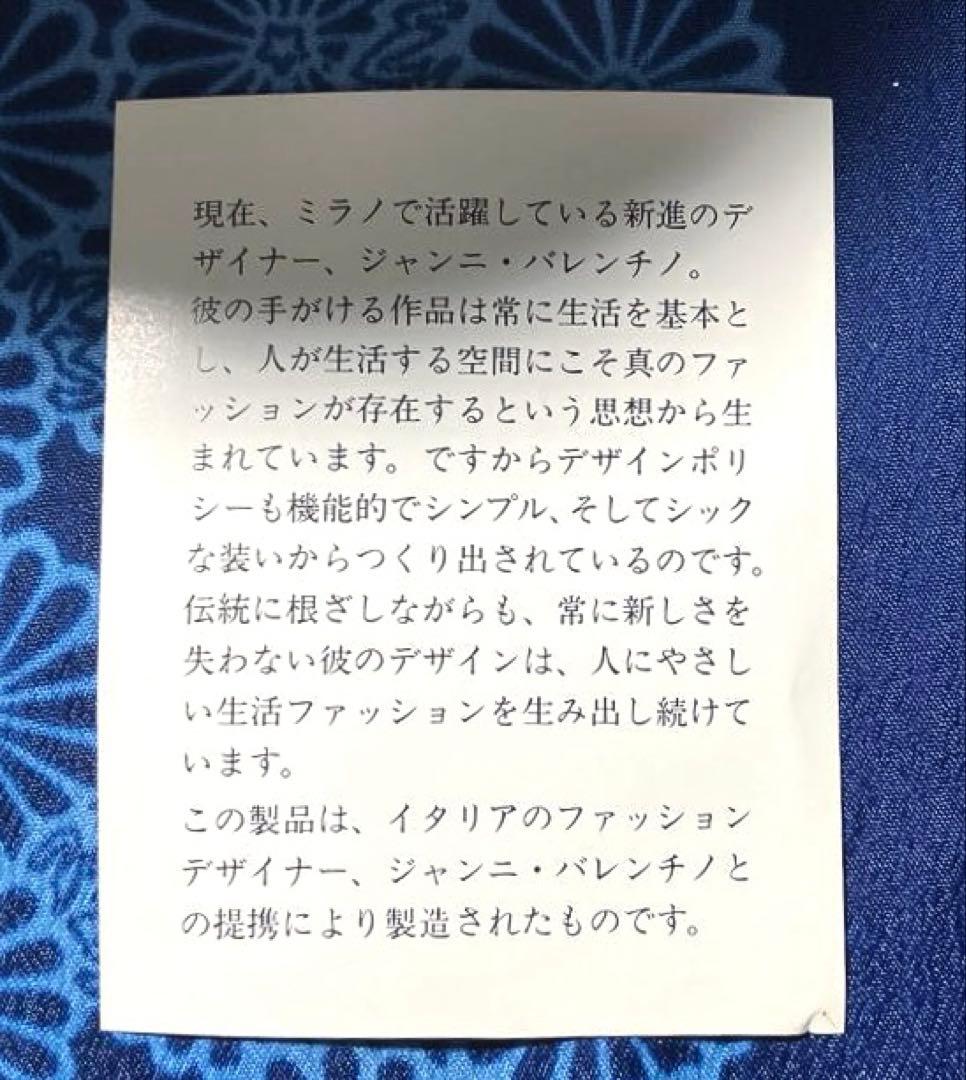 現在、ミラノで活躍している新進のデ
ザイナー、ジャンニ・バレンチノ。
彼の手がける作品は常に生活を基本と
し、人が生活する空間にこそ真のファ
ッションが存在するという思想から生
まれています。ですからデザインポリ
シーも機能的でシンプル、そしてシック
な装いからつくり出されているのです。
伝統に根ざしながらも、常に新しさを
失わない彼のデザインは、人にやさし
い生活ファッションを生み出し続けて
います。
この製品は、イタリアのファッション
デザイナー、ジャンニ・バレンチノと
の提携により製造されたものです。